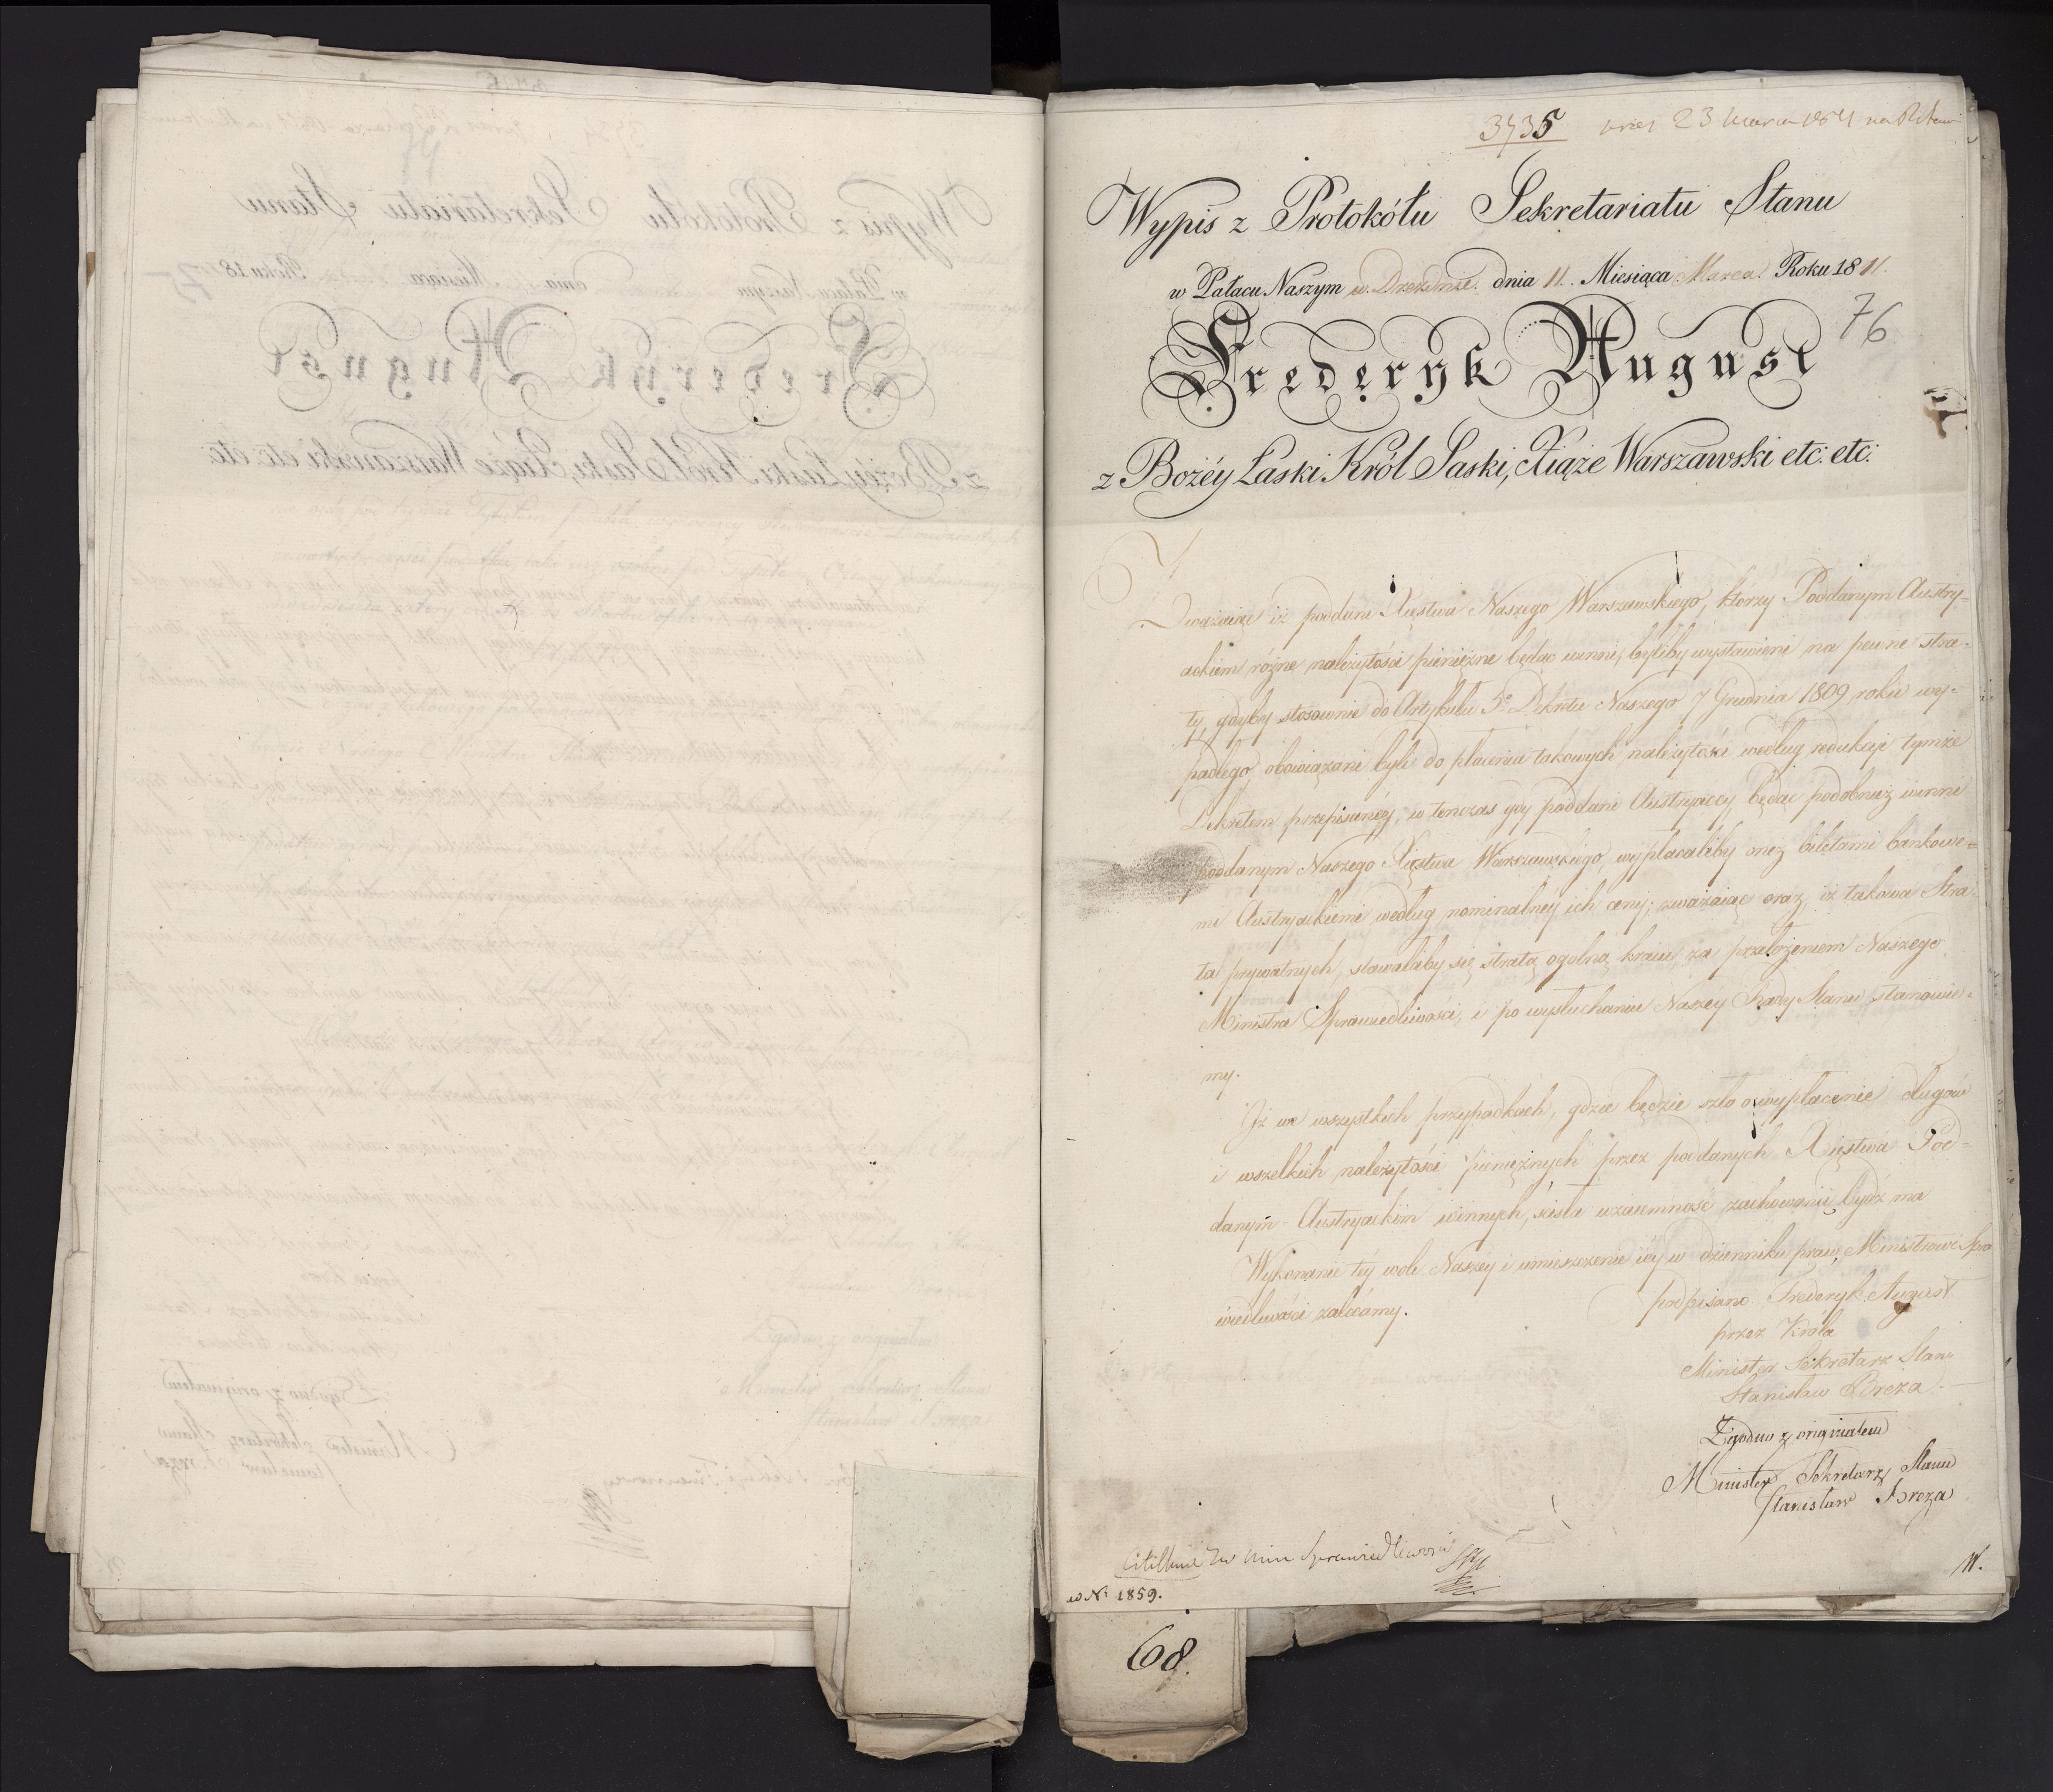 3735
23 Marca
Wypis z Protokółu Sekretariatu Stanu
w Pałacu Naszym w Dreznie dnia 11. Miesiąca Marca Roku 1811.
76
Frederyk August
z Bożéy Łaski Król Saski, Xiąże Warszawski etc: etc:
Zważaiąc iż poddani Xięstwa Naszego Warszawskiego, którzy Poddanym Austry-
ackim różne należytości pieniężne będąc winni, byliby wystawieni na pewne stra-
ty, gdyby stosownie do Artykułu 5° Dekretu Naszego 7 Grudnia 1809 roku wy-
padłego, obowiązani byli do płacenia takowych należytości według redukcyi tymże
Dekretem przepisanéy, w tenczas gdy poddani Austryaccy, będąc podobnież winni
poddanym Naszego Xięstwa Warszawskiego, wypłacaliby onez biletami bankowe-
mi Austryackiemi według nominalnéy ich ceny; zważaiąc oraz, iż takowa Stra-
ta prywatnych, stawałaby się stratą ogólną kraiu, za przełożeniem Naszego
Ministra Sprawiedliwości, i po wysłuchaniu Naszéy Rady Stanu, stanowie-
my.
Iż we wszystkich przypadkach, gdzie będzie szło o wypłacenie długów
i wszelkich należytości pieniężnych przez poddanych Xięstwa Pod-
danym Austryackim winnych, ścisła wzaiemność zachowana bydź ma
Wykonanie téy woli Naszéy i umieszczenie iéy w dzienniku praw, Ministrowi Spra
wiedliwości zalecamy.
podpisano Frederyk August
przez Króla
Minister Sekretarz Stanu
Stanisław Breza
Zgodno z originałem
Minister Sekretarz Stanu
Stanisław Breza
Min Sprawiedliwości
w Nr 1859.
W.
68.